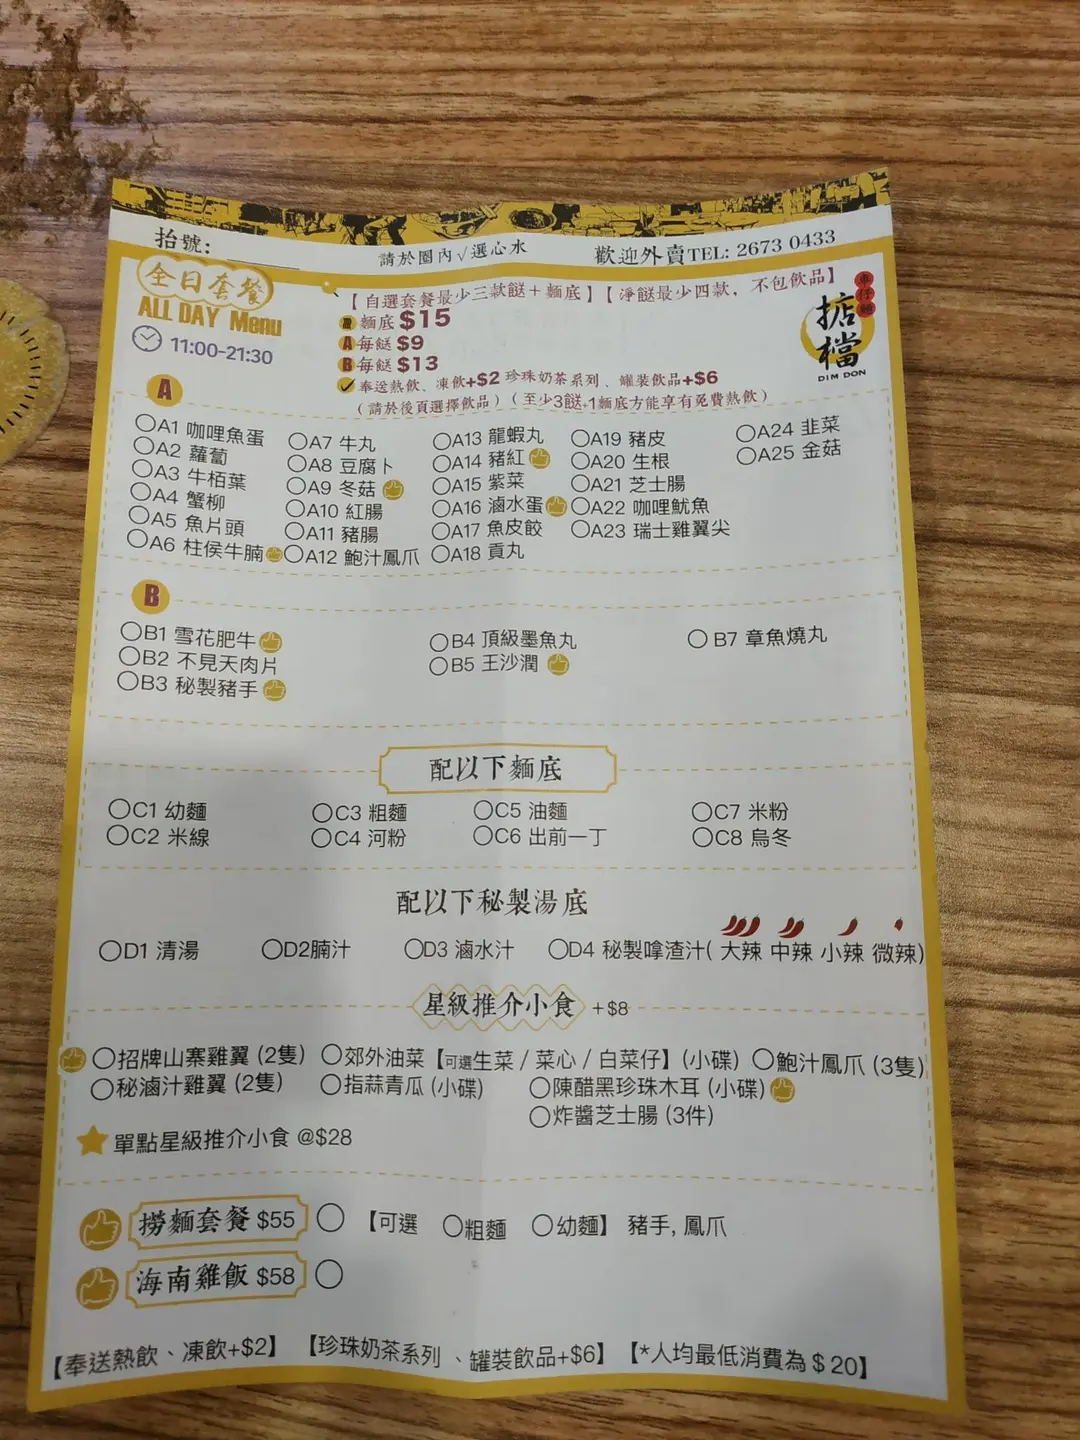 抬號:
請於圈內√選心水
歡迎外賣TEL: 2673 0433
全日套餐
ALL DAY Menu
11:00-21:30
【自選套餐最少三款餸＋麵底】【淨餸最少四款，不包飲品】
麵底 $15
A 每餸 $9
B 每餸 $13
奉送熱飲、凍飲+$2 珍珠奶茶系列、罐裝飲品+$6
（請於後頁選擇飲品）（至少3餸+1麵底方能享有免費熱飲）
車仔麵
掂檔
DIM DON
A
A1 咖哩魚蛋
A2 蘿蔔
A3 牛栢葉
A4 蟹柳
A5 魚片頭
A6 柱侯牛腩
A7 牛丸
A8 豆腐卜
A9 冬菇
A10 紅腸
A11 豬腸
A12 鮑汁鳳爪
A13 龍蝦丸
A14 豬紅
A15 紫菜
A16 滷水蛋
A17 魚皮餃
A18 貢丸
A19 豬皮
A20 生根
A21 芝士腸
A22 咖哩魷魚
A23 瑞士雞翼尖
A24 韭菜
A25 金菇
B
B1 雪花肥牛
B2 不見天肉片
B3 秘製豬手
B4 頂級墨魚丸
B5 王沙潤
B7 章魚燒丸
配以下麵底
C1 幼麵
C2 米線
C3 粗麵
C4 河粉
C5 油麵
C6 出前一丁
C7 米粉
C8 烏冬
配以下秘製湯底
D1 清湯
D2腩汁
D3 滷水汁
D4 秘製嗱渣汁( 大辣 中辣 小辣 微辣)
星級推介小食 +$8
招牌山寨雞翼 (2隻)
郊外油菜【可選生菜 / 菜心 / 白菜仔】(小碟)
鮑汁鳳爪 (3隻)
秘滷汁雞翼 (2隻)
指蒜青瓜 (小碟)
陳醋黑珍珠木耳 (小碟)
炸醬芝士腸 (3件)
單點星級推介小食 @$28
撈麵套餐 $55
【可選 粗麵 幼麵】 豬手, 鳳爪
海南雞飯 $58
【奉送熱飲、凍飲+$2】 【珍珠奶茶系列 、罐裝飲品+$6】 【*人均最低消費為 $ 20】